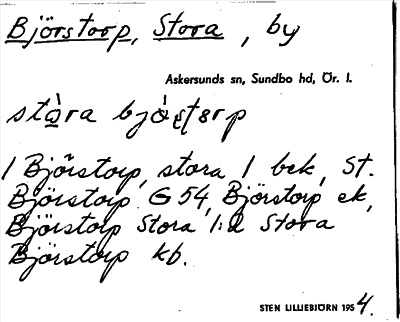 Björstorp, Stora, by
Askersunds sn, Sundbo hd, Ör. l.
stòra bjà
/ Björstorp, stora / bek, St.
Björstorp G 54, Björstorp ek,
Björstorp Stora 1:2 Stora
Björstorp kb.
STEN LILLIEBJÖRN 1954.